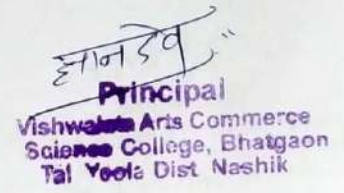 ज्ञानदेव
Principal
Arts Commerce
Science College, Bhatgaon
Tal Yeola Dist Nashik